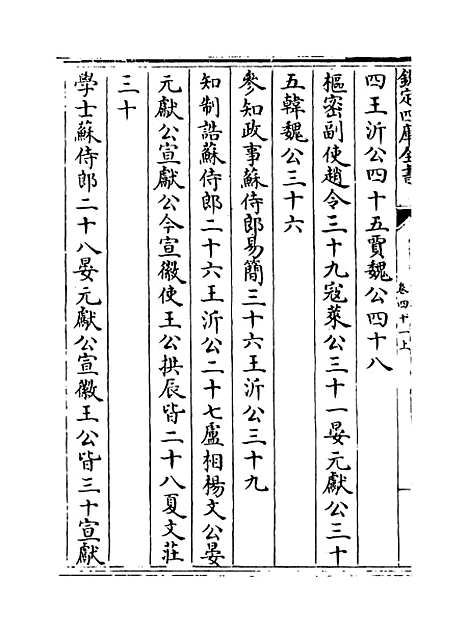 欽定四庫全書
卷四十一上
四王沂公四十五賈魏公四十八
樞密副使趙令三十九寇萊公三十一晏元獻公三十
五韓魏公三十六
參知政事蘇侍郎易簡三十六王沂公三十九
知制誥蘇侍郎二十六王沂公二十七盧相楊文公晏
元獻公宣獻公今宣徽使王公拱辰皆二十八夏文莊
三十
學士蘇侍郎二十八晏元獻公宣徽王公皆三十宣獻